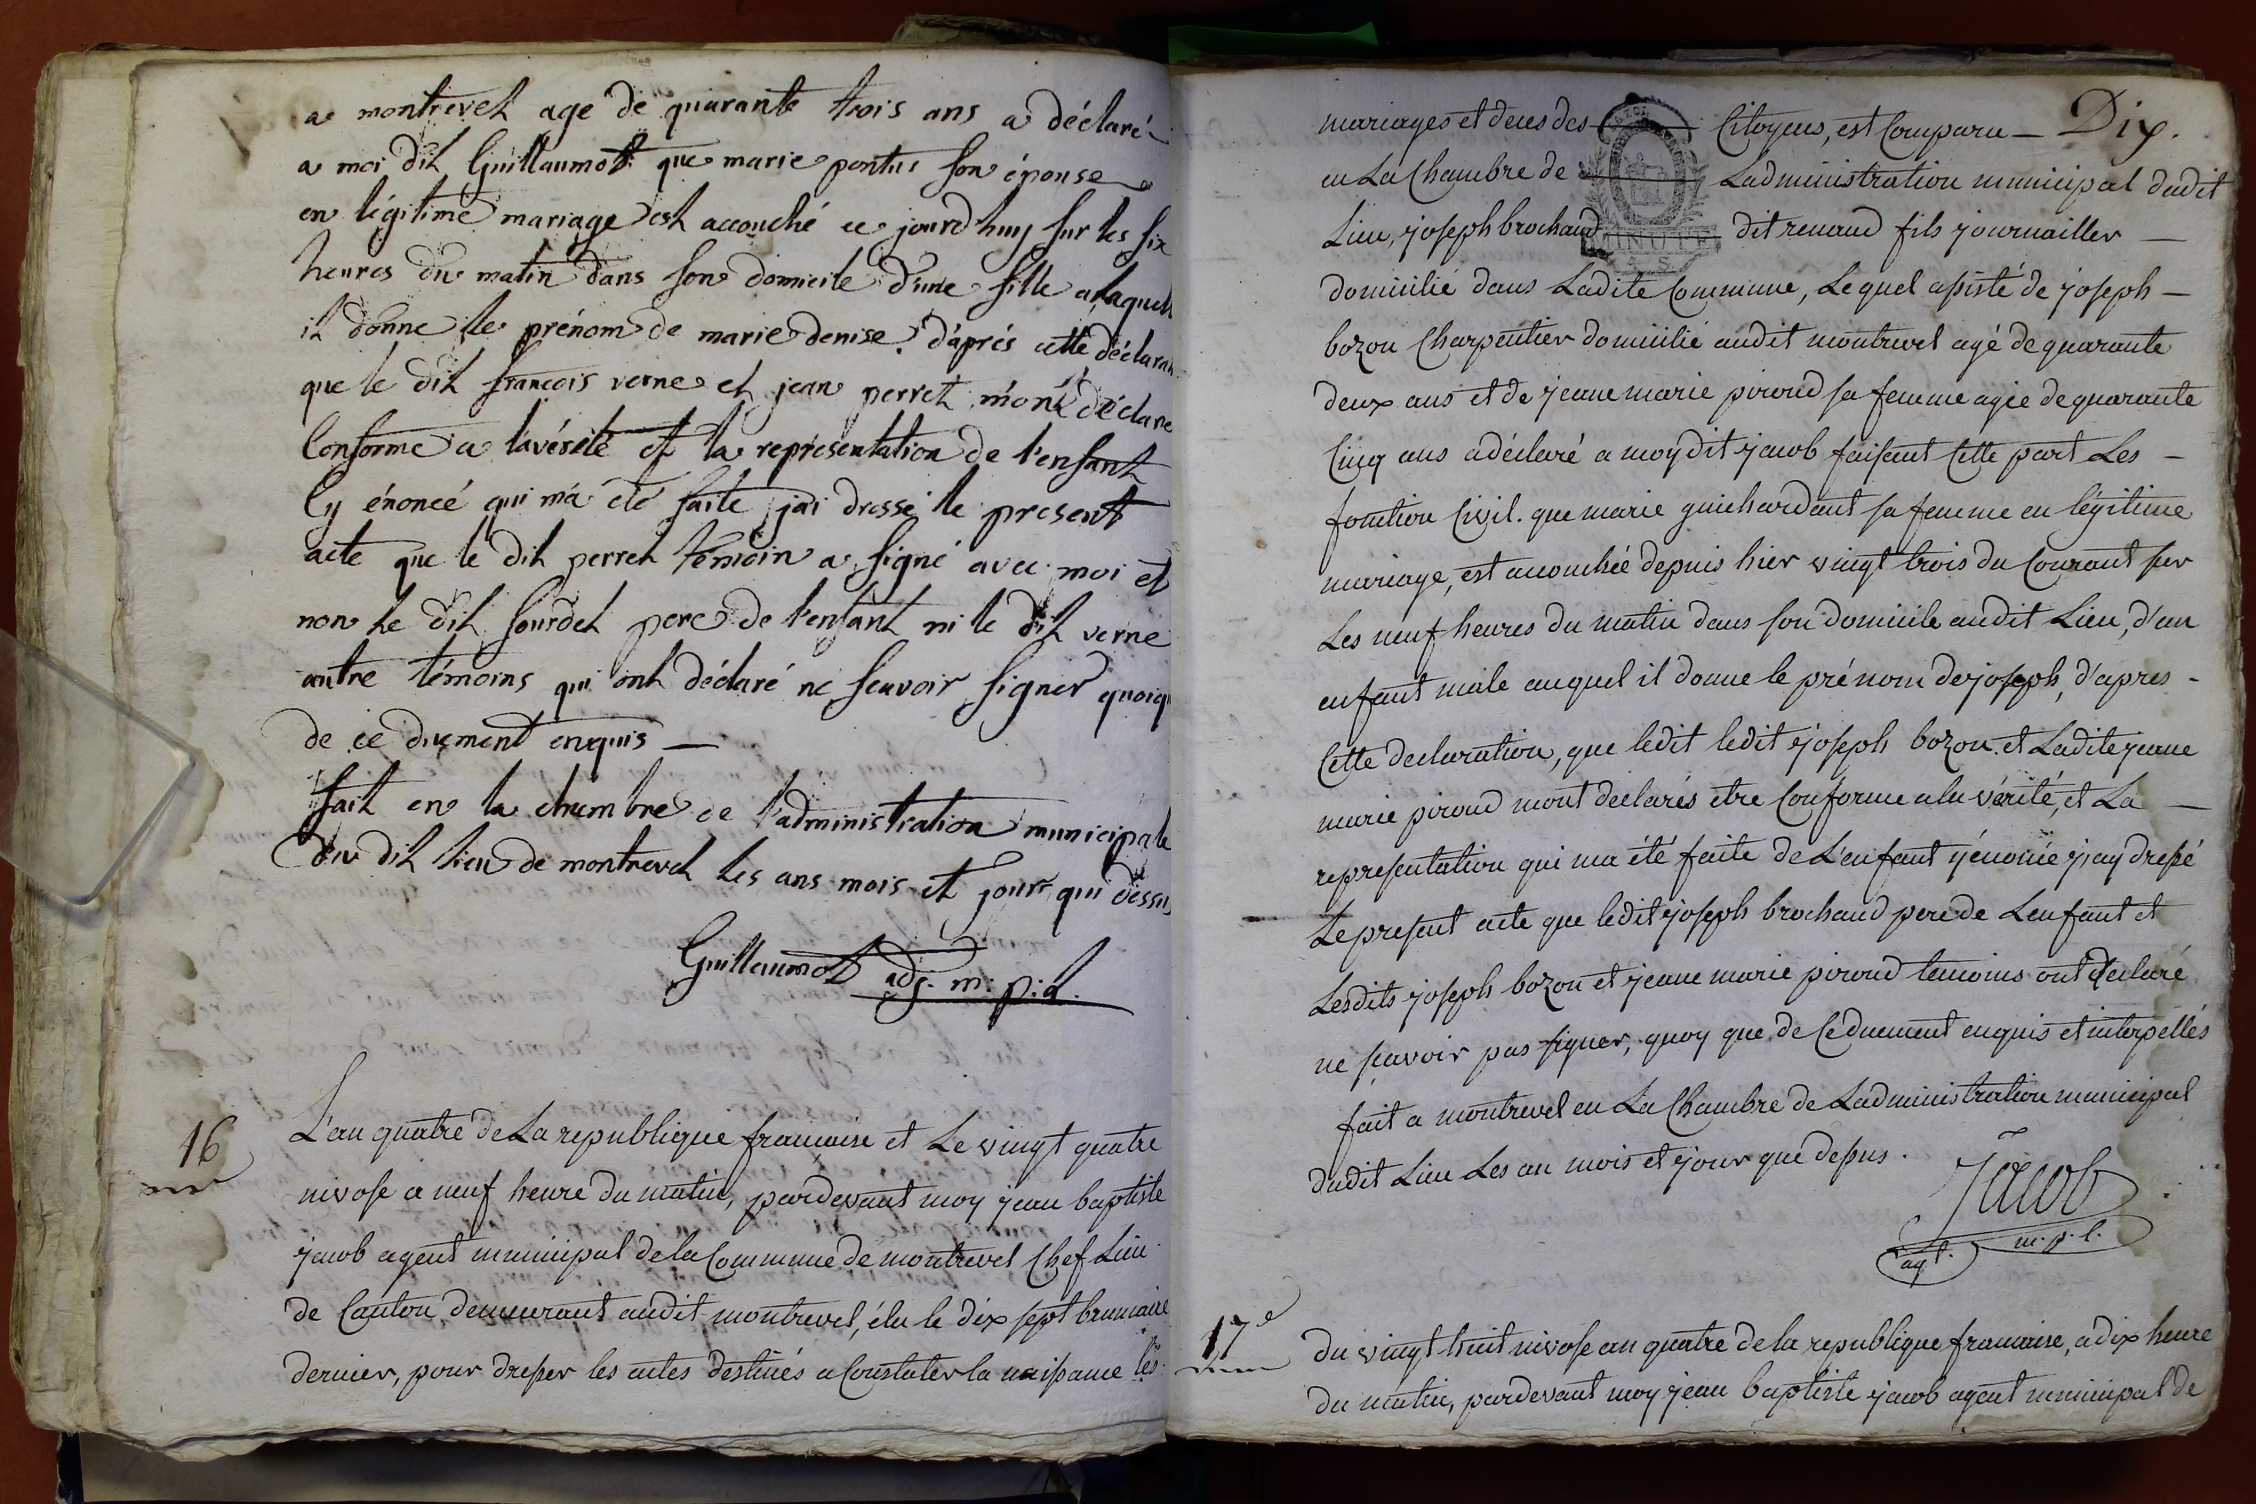 a montrevel age de quarante trois ans a déclaré
a moi dit Guillaumot que marie pontus son épouse
en légitime mariage est accouché ce jourd'huy sur les six
heures du matin dans son domicile d'une fille a laquelle
il donne le prénom de marie denise. d'aprés cette déclarat
que le dit françois verne et jean perret m'ont déclaré
Conforme a la vérité et la representation de l'enfant
Cy énoncé qui m'a été faite j'ai dressé le present
acte que le dit perret témoin a signé avec moi et
non le dit sourdet pere de l'enfant ni le dit verne
autre témoins qui ont déclaré ne scavoir signer quoiq
de ce duement enquis —
fait en la chambre de l'administration municipale
du dit lieu de montrevel les ans mois et jour qui dessus
Guillaumot adj. m. p.al.
16
L'an quatre de La republique françoise et Le vingt quatre
nivose a neuf heure du matin, pardevant moy jean baptiste
jacob agent municipal de la Commune de montrevel Chef Lieu
de Canton demeurant audit montrevel, élu le dix sept brumaire
dernier, pour dresser les actes destinés a Constater la naissance les
Dix.
mariages et deces des Citoyens, est Comparu —
en La Chambre de Ladministration municipal dudit
Lieu, joseph brochaud dit renaud fils journailler —
MINUTE
domicilié dans Ladite Commune, Lequel assisté de joseph —
bozon Charpentier domicilié audit montrevel agé de quarante
deux ans et de jeanne marie piroud sa femme agée de quarante
Cinq ans a déclaré a moy dit jacob faisant Cette part Les —
fonction Civil. que marie guichardant sa femme en légitime
mariage, est acouchée depuis hier vingt trois du Courant sur
Les neuf heures du matin dans son domicile audit Lieu, d'un
enfant male auquel il donne le prénom de joseph, d'apres -
Cette declaration, que ledit ledit joseph bozon et Ladite jeane
marie piroud mont declarés etre Conforme a la vérité, et La —
representation qui ma été faite de L'enfant y énoncée j'ay dressé
Le present acte que ledit joseph brochaud pere de Lenfant et
Lesdits joseph bozon et jeane marie piroud temoins ont declaré
ne sçavoir pas signer, quoy que de Ce duement enquis et interpellés
fait a montrevel en La Chambre de Ladministration municipal
dudit Lieu Les an mois et jour que dessus.
Jacob
agt. m. p. l.
17e
du vingt huit nivose an quatre de la republique francaise, a dix heure
du matin, pardevant moy jean baptiste jacob agent municipal de